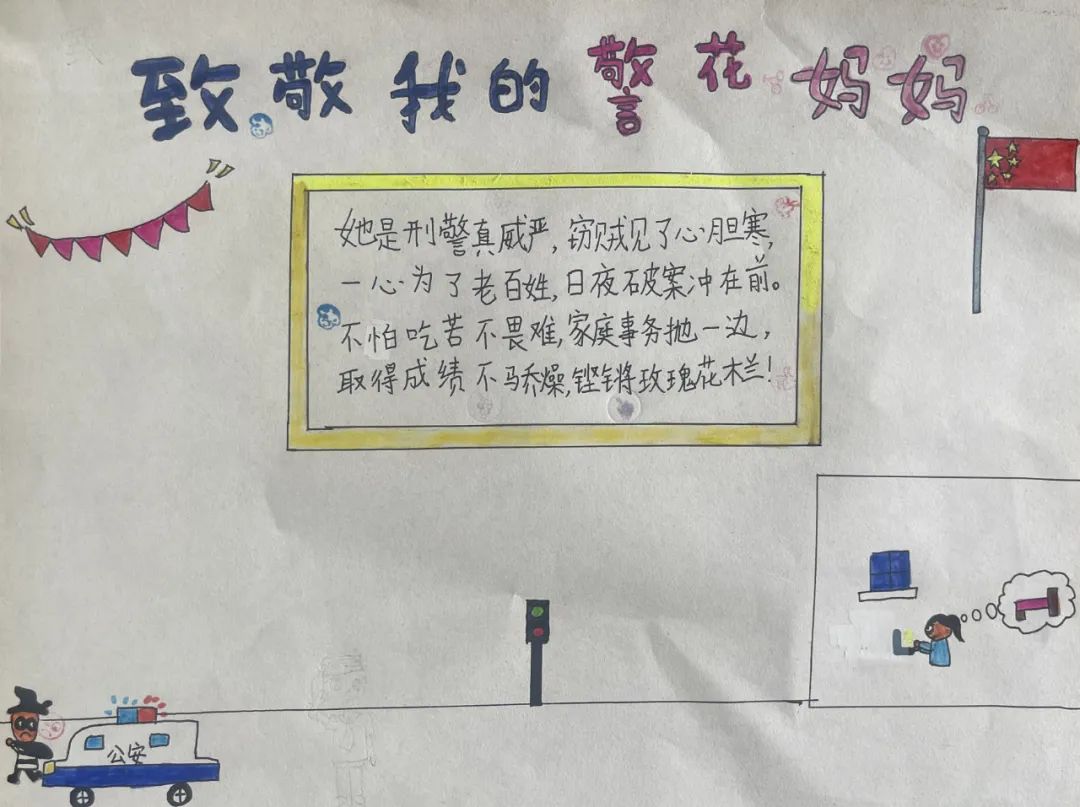 致敬我的警花妈妈
她是刑警真威严,窃贼见了心胆寒,
一心为了老百姓,日夜破案冲在前。
不怕吃苦不畏难,家庭事务抛一边,
取得成绩不骄燥,铿锵玫瑰花木兰!
公安